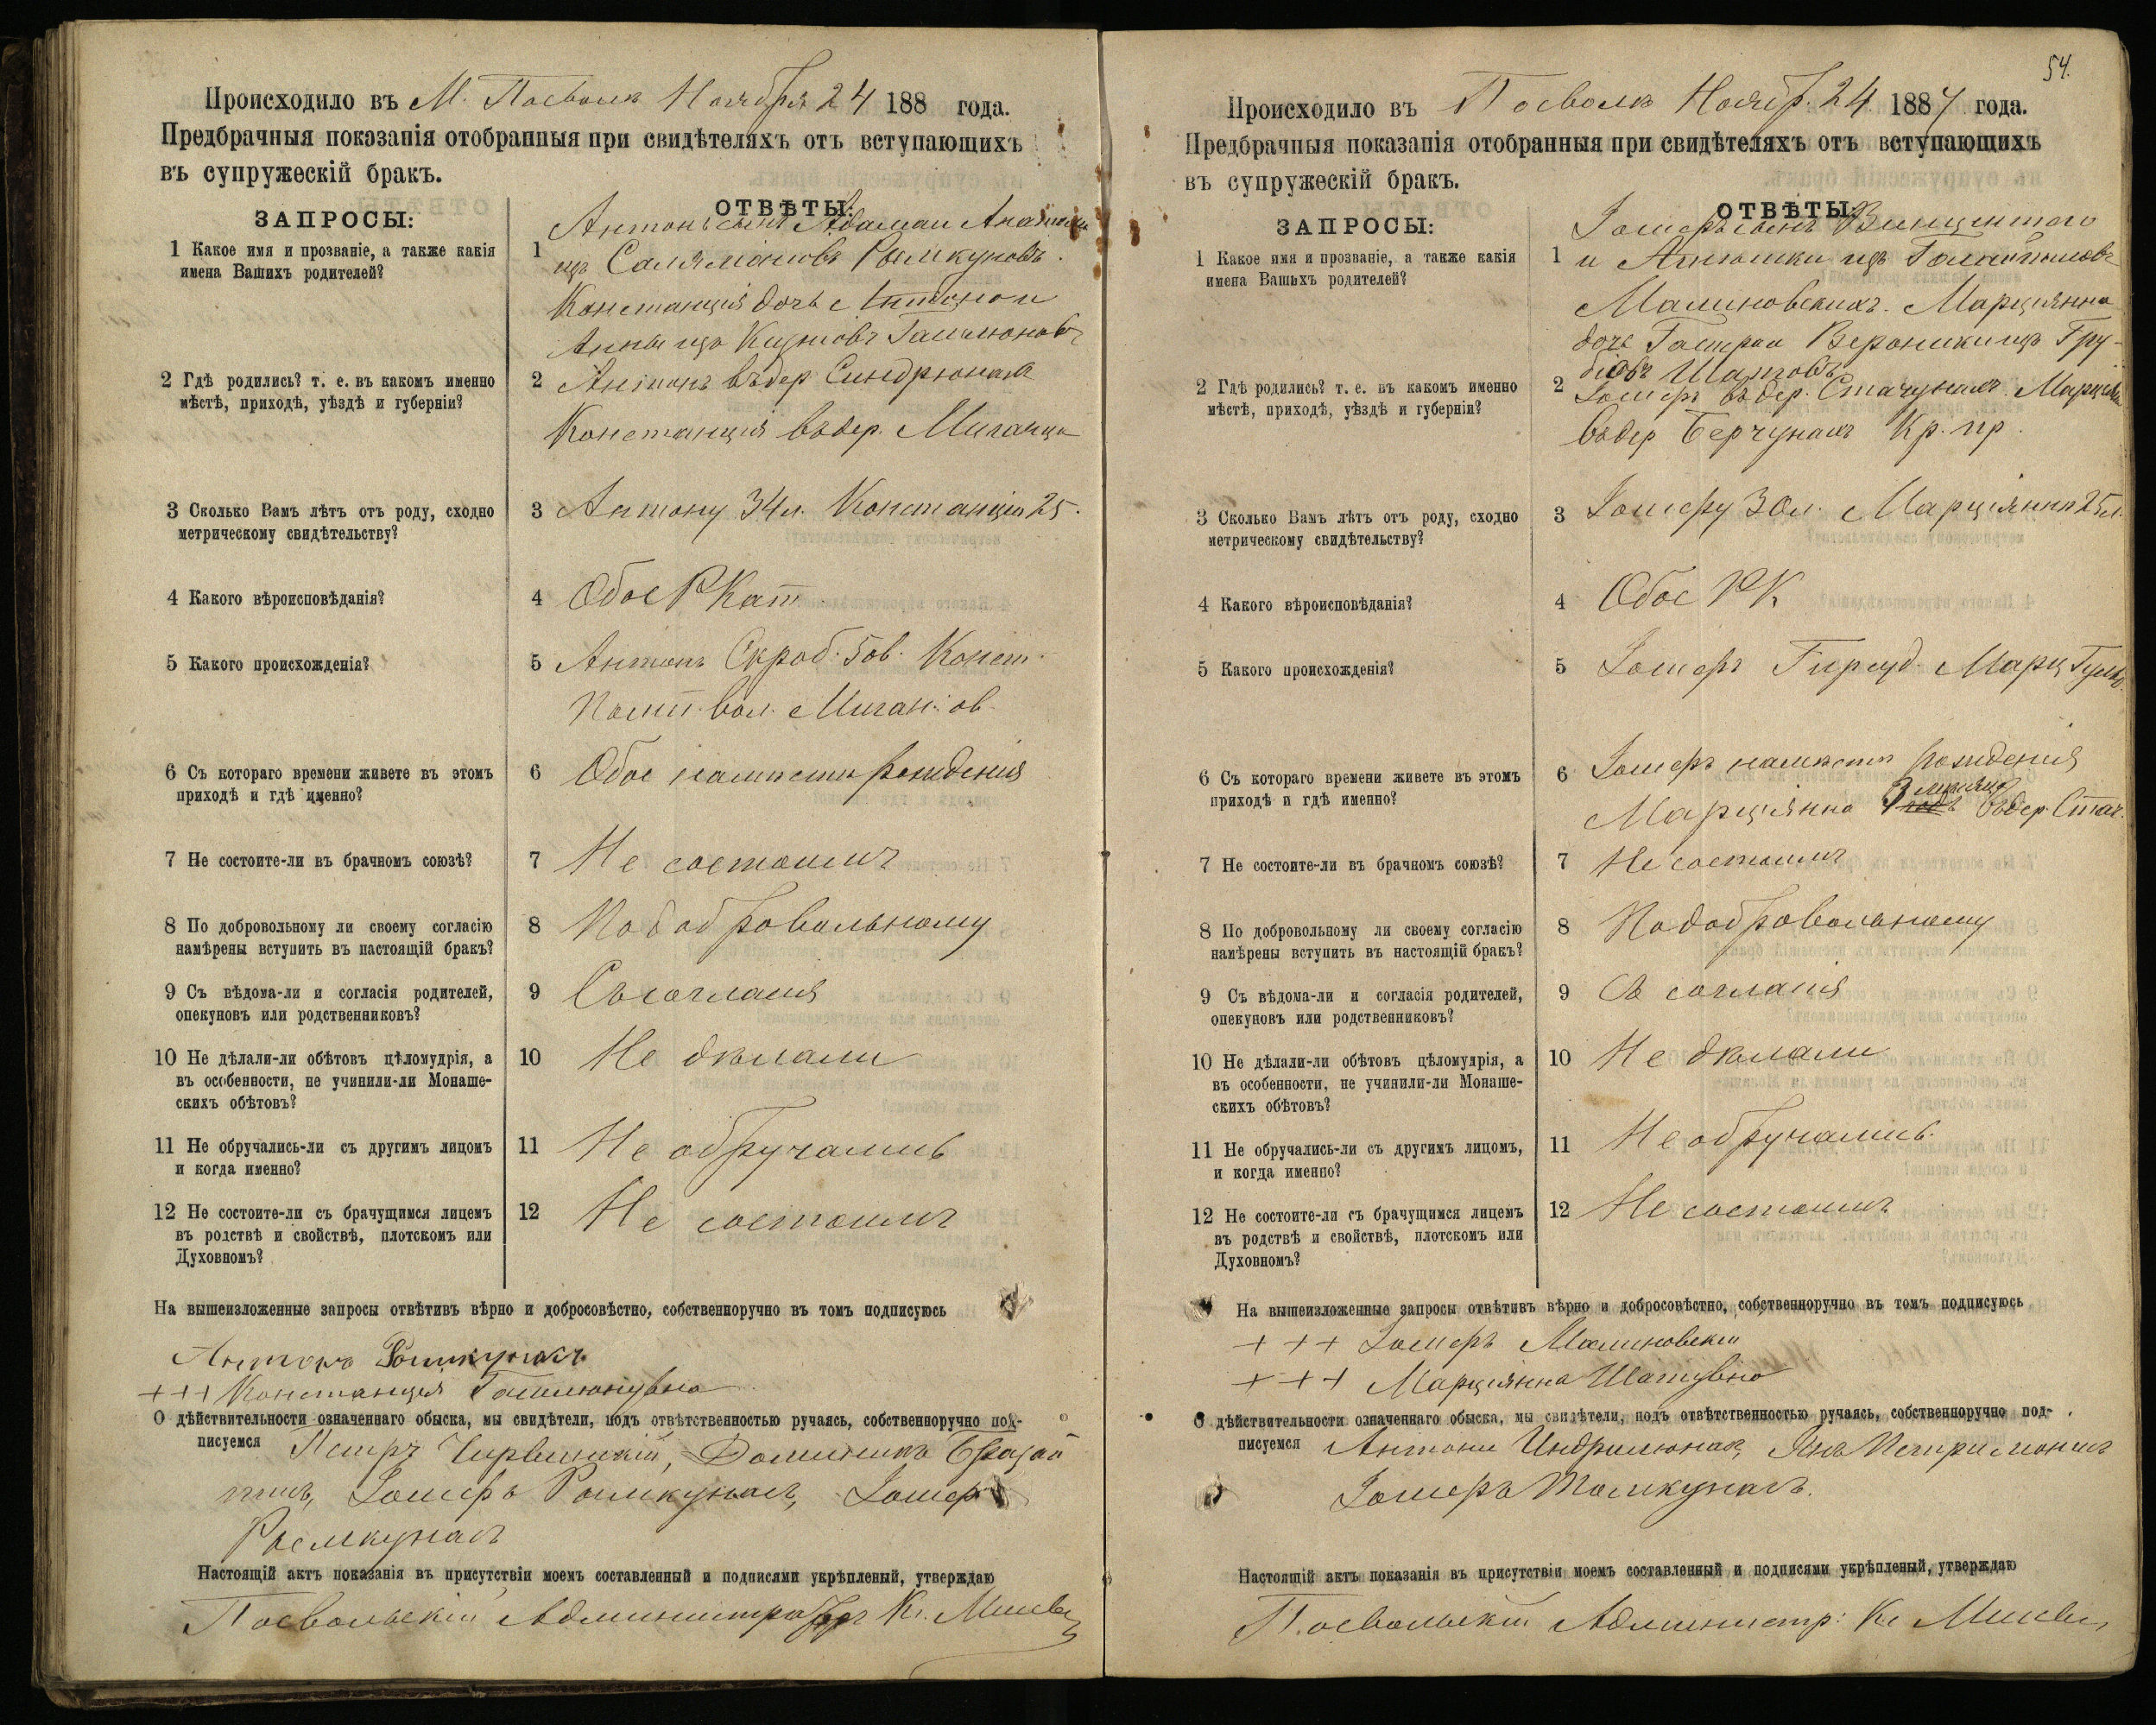 Происходило въ М. Посволь Ноября 24 188 года.
Предбрачныя показанія отобранныя при свидѣтеляхъ отъ вступающихъ
въ супружескій бракъ.
ЗАПРОСЫ:
ОТВѢТЫ:
1 Какое имя и прозваніе, а также какія
имена Вашихъ родителей?
1 Антонъ сынъ Адама и
изъ Рымкуновъ.
Констанція дочь Антона и
Анны изъ
2 Гдѣ родились? т. е. въ какомъ именно
мѣстѣ, приходѣ, уѣздѣ и губерніи?
2 Антонъ въ дер
Констанція въ дер.
3 Сколько Вамъ лѣтъ отъ роду, сходно
метрическому свидѣтельству?
3 Антону 34 л. Констанціи 25.
4 Какого вѣроисповѣданія?
4 Обое Р Кат
5 Какого происхожденія?
5 Антонъ Скроб. Конст.
вол.
6 Съ котораго времени живете въ этомъ
приходѣ и гдѣ именно?
6 Обое рождения
7 Не состоите-ли въ брачномъ союзѣ?
7 Не состоимъ
8 По добровольному ли своему согласію
намѣрены вступить въ настоящій бракъ?
8 По добровольному
9 Съ вѣдома-ли и согласія родителей,
опекуновъ или родственниковъ?
9 Съ согласія
10 Не дѣлали-ли обѣтовъ цѣломудрія, а
въ особенности, не учинили-ли Монаше-
скихъ обѣтовъ?
10 Не дѣлали
11 Не обручались-ли съ другимъ лицомъ
и когда именно?
11 Не обручались
12 Не состоите-ли съ брачущимся лицемъ
въ родствѣ и свойствѣ, плотскомъ или
Духовномъ?
12 Не состоимъ
На вышеизложенные запросы отвѣтивъ вѣрно и добросовѣстно, собственноручно въ томъ подписуюсь
Антонъ
+++ Констанція
О дѣйствительности означеннаго обыска, мы свидѣтели, подъ отвѣтственностью ручаясь, собственноручно под-
писуемся Петръ
Іосифъ Рымкунасъ, Іосифъ
Рымкунасъ
Настоящій актъ показанія въ присутствіи моемъ составленный и подписями укрѣпленый, утверждаю
Посвольскій Администраторъ Кс.
54.
Происходило въ Посволь Нояб. 24 1887 года.
Предбрачныя показанія отобранныя при свидѣтеляхъ отъ вступающихъ
въ супружескій бракъ.
ЗАПРОСЫ:
ОТВѢТЫ:
1 Какое имя и прозваніе, а также какія
имена Вашихъ родителей?
1 Іосифъ сынъ Винцентаго
и изъ
Малиновскихъ. Марціянна
дочь Гаспра и Вероники изъ Гру-
Шатовъ
2 Гдѣ родились? т. е. въ какомъ именно
мѣстѣ, приходѣ, уѣздѣ и губерніи?
2 Іосифъ въ дер. Стачунахъ.
въ дер Берчунахъ Кр. пр.
3 Сколько Вамъ лѣтъ отъ роду, сходно
метрическому свидѣтельству?
3 Іосифу 30 л. Марціянна 25 л.
4 Какого вѣроисповѣданія?
4 Обое Р К
5 Какого происхожденія?
5 Іосифъ Марц.
6 Съ котораго времени живете въ этомъ
приходѣ и гдѣ именно?
6 Іосифъ рожденія
Марціянна въ дер. Стач.
7 Не состоите-ли въ брачномъ союзѣ?
7 Не состоимъ
8 По добровольному ли своему согласію
намѣрены вступить въ настоящій бракъ?
8 По добровольному
9 Съ вѣдома-ли и согласія родителей,
опекуновъ или родственниковъ?
9 Съ согласія
10 Не дѣлали-ли обѣтовъ цѣломудрія, а
въ особенности, не учинили-ли Монаше-
скихъ обѣтовъ?
10 Не дѣлали
11 Не обручались-ли съ другимъ лицомъ,
и когда именно?
11 Не обручались.
12 Не состоите-ли съ брачущимся лицемъ
въ родствѣ и свойствѣ, плотскомъ или
Духовномъ?
12 Не состоимъ
На вышеизложенные запросы отвѣтивъ вѣрно и добросовѣстно, собственноручно въ томъ подписуюсь
+++ Іосифъ Малиновскій
+++ Марціянна Шатувна
О дѣйствительности означеннаго обыска, мы свидѣтели, подъ отвѣтственностью ручаясь, собственноручно под-
писуемся Антони
Іосифъ
Настоящій актъ показанія въ присутствіи моемъ составленный и подписями укрѣпленый, утверждаю
Посвольскій Администр: Кс